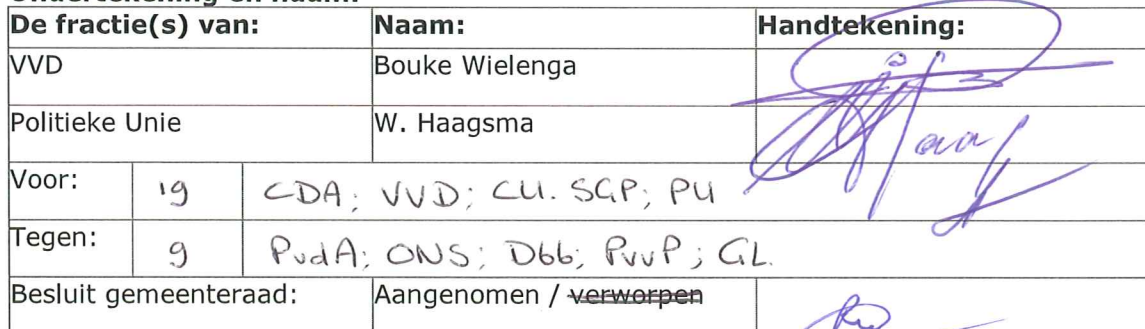 De fractie(s) van: Naam: Handtekening:
VVD Bouke Wielenga
Politieke Unie W. Haagsma
Voor: 19 CDA; VVD; CU. SGP; PU
Tegen: 9 PvdA; ONS; D66; PvvP; GL.
Besluit gemeenteraad: Aangenomen / verworpen